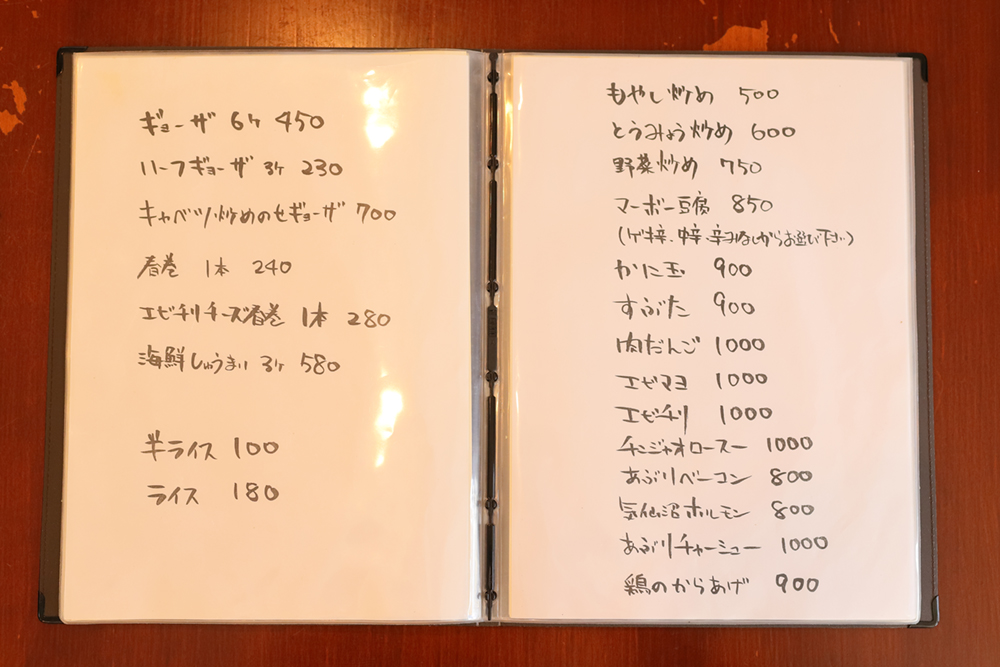 ギョーザ 6ケ 450
ハーフギョーザ 3ケ 230
キャベツ炒めのせギョーザ 700
春巻 1本 240
エビチリチーズ春巻 1本 280
海鮮しゅうまい 3ケ 580
半ライス 100
ライス 180
もやし炒め 500
とうみょう炒め 600
野菜炒め 750
マーボー豆腐 850
(ゲキ辛、中辛、辛みなしからお選び下さい)
かに玉 900
すぶた 900
肉だんご 1000
エビマヨ 1000
エビチリ 1000
チンジャオロースー 1000
あぶりベーコン 800
気仙沼ホルモン 800
あぶりチャーシュー 1000
鶏のからあげ 900